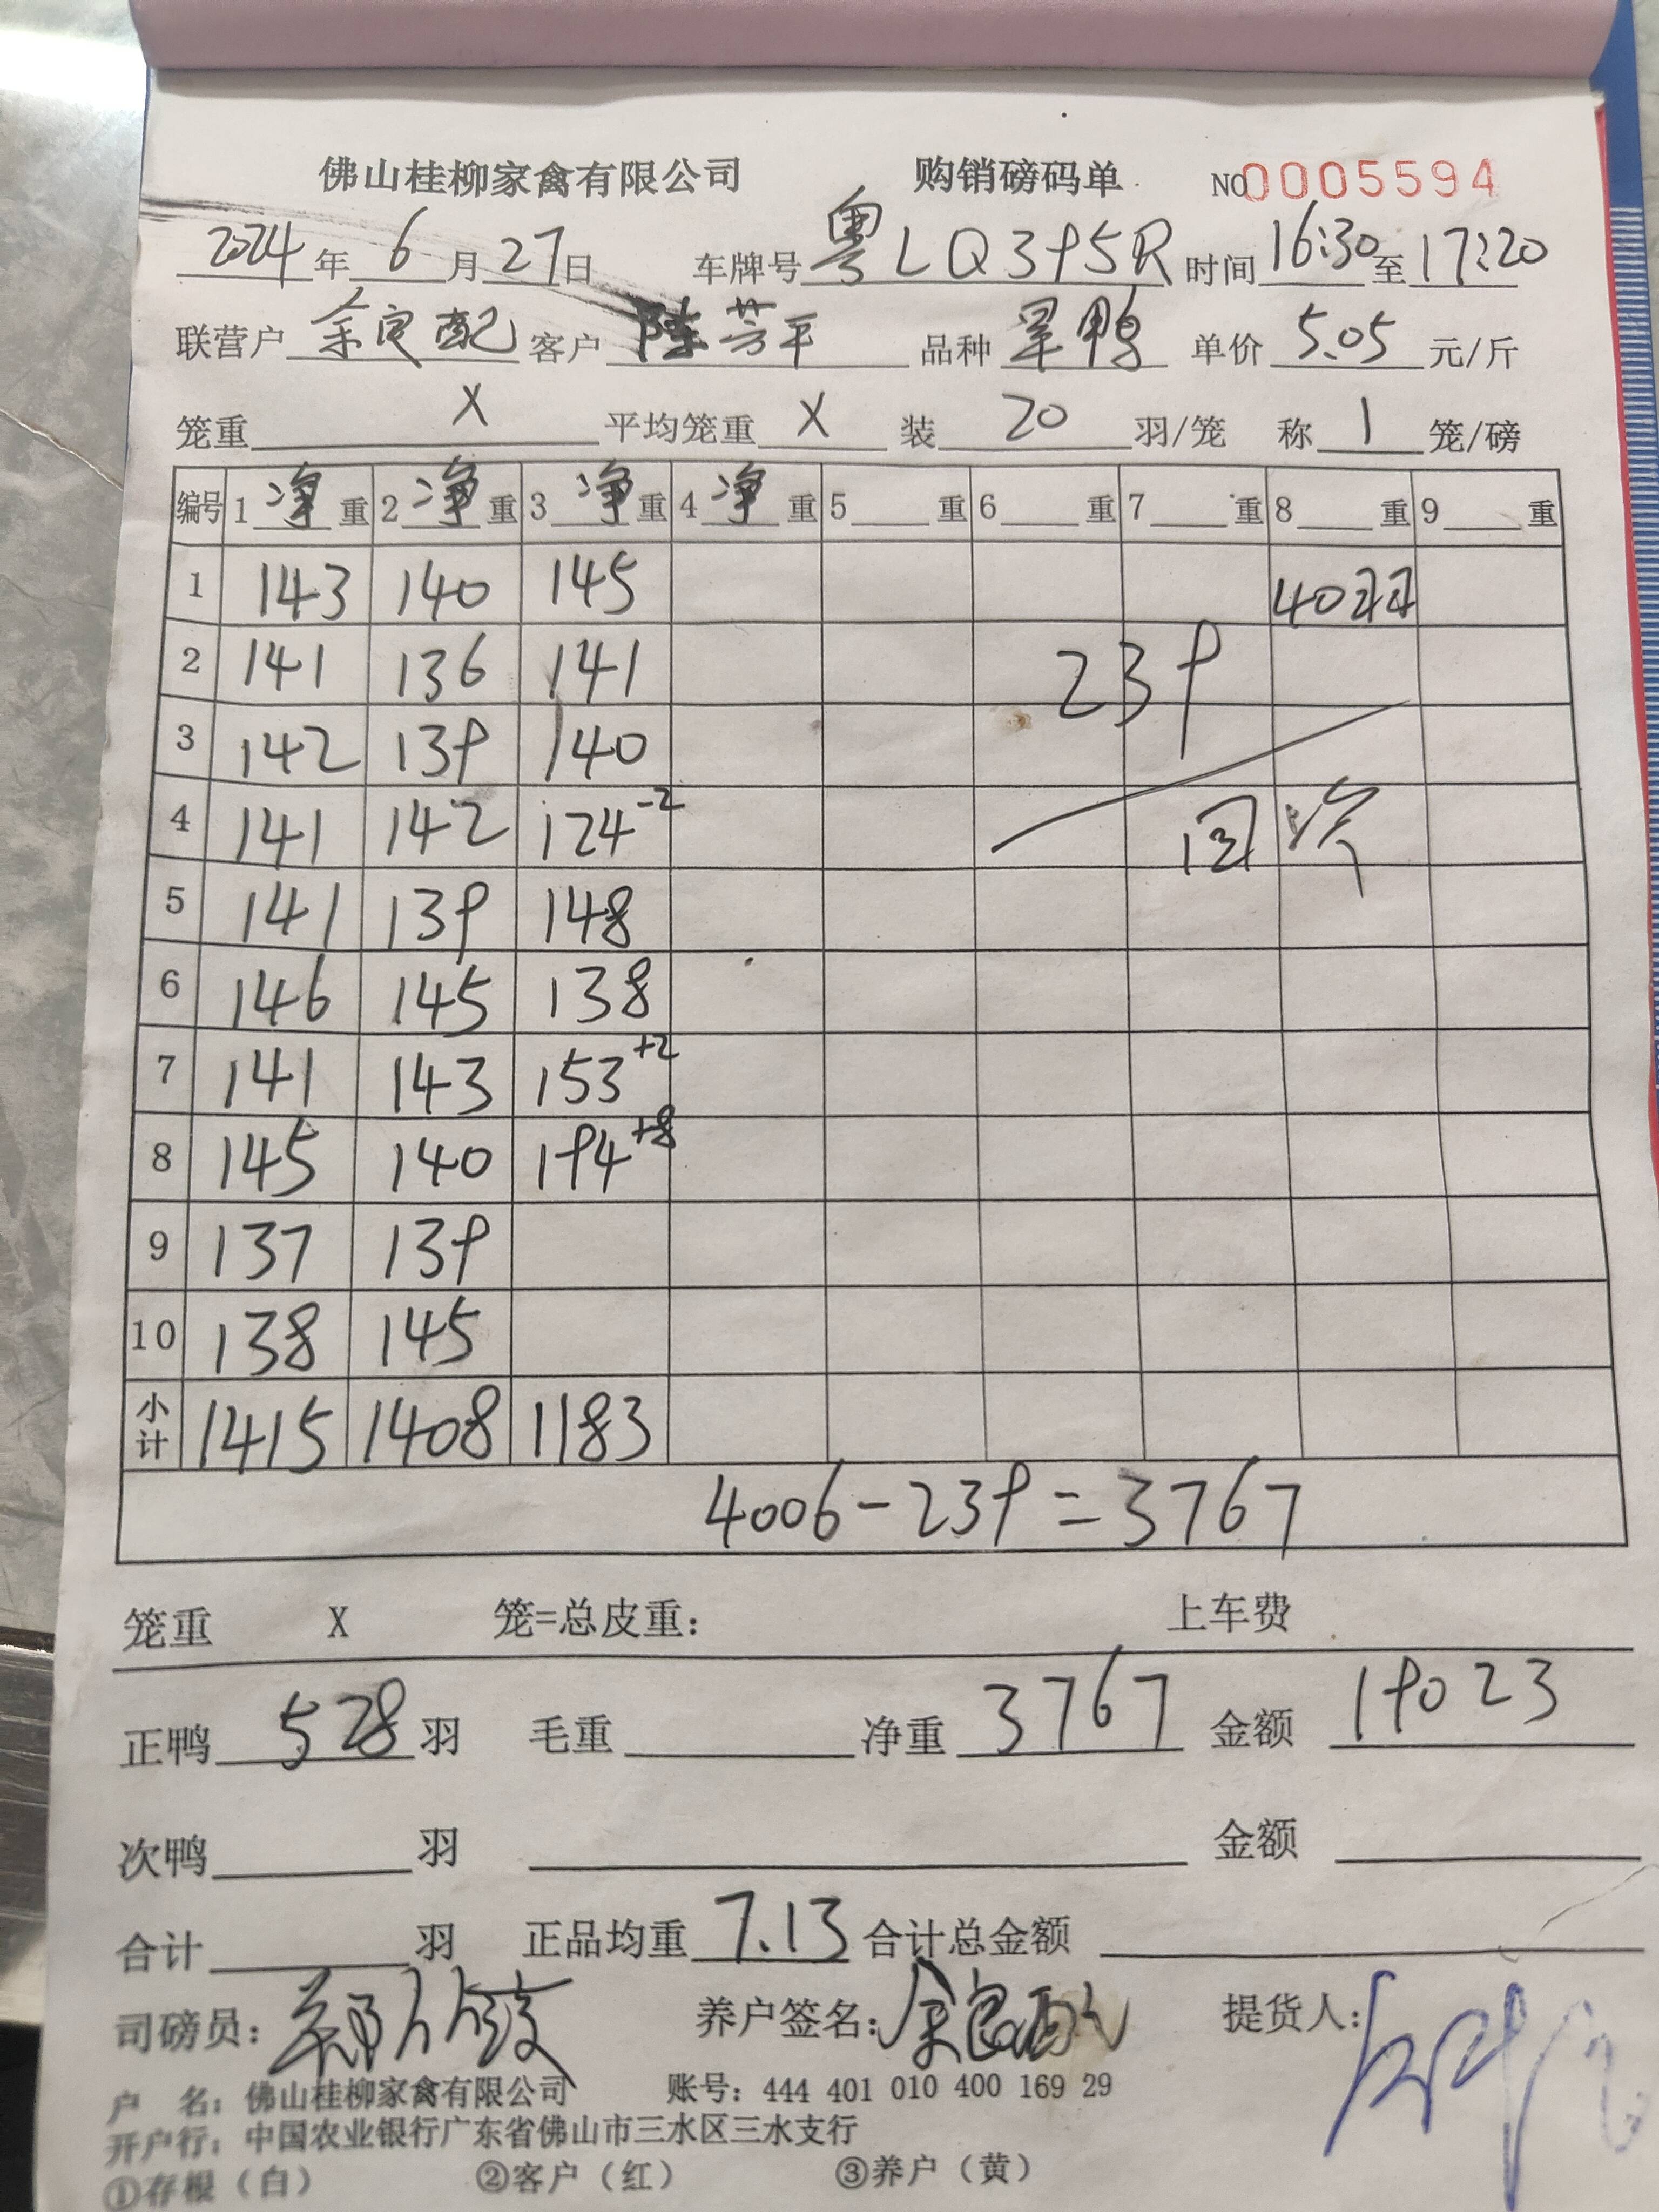 佛山桂柳家禽有限公司 购销磅码单 NO0005594
2024年6月27日 车牌号粤LQ395R 时间16:30至17:20
联营户余定配 客户陈芳平 品种旱鸭 单价5.05元/斤
笼重X 平均笼重X 装20羽/笼 称1笼/磅
编号 1净重 2净重 3净重 4净重 5重 6重 7重 8重 9重
1 143 140 145 40羽
2 141 136 141 239
3 142 139 140
4 141 142 124-2 回
5 141 139 148
6 146 145 138
7 141 143 153+2
8 145 140 194+8
9 137 139
10 138 145
小计 1415 1408 1183
4006-239=3767
笼重 X 笼=总皮重: 上车费
正鸭528羽 毛重 净重3767 金额19023
次鸭 羽 金额
合计 羽 正品均重7.13 合计总金额
司磅员: 养户签名: 提货人:
户 名: 佛山桂柳家禽有限公司 账号: 444 401 010 400 169 29
开户行: 中国农业银行广东省佛山市三水区三水支行
①存根（白） ②客户（红） ③养户（黄）